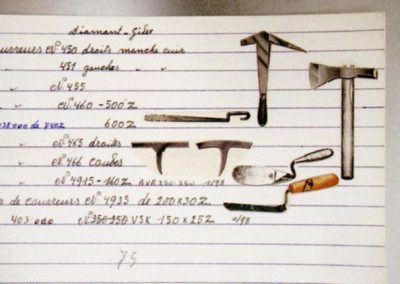 Diamant-Gider
couvreurs N° 450 droits manche cuir
" 451 gauches " "
" N° 455
" N° 460-500Z
600Z
" N° 465 droites
" N° 466 coudes
" N° 4915-160Z AVR 350 350 1/98
de couvreurs N° 4935 de 200x30Z
403 N° 350 350 VSK 150x25Z 1/98
75